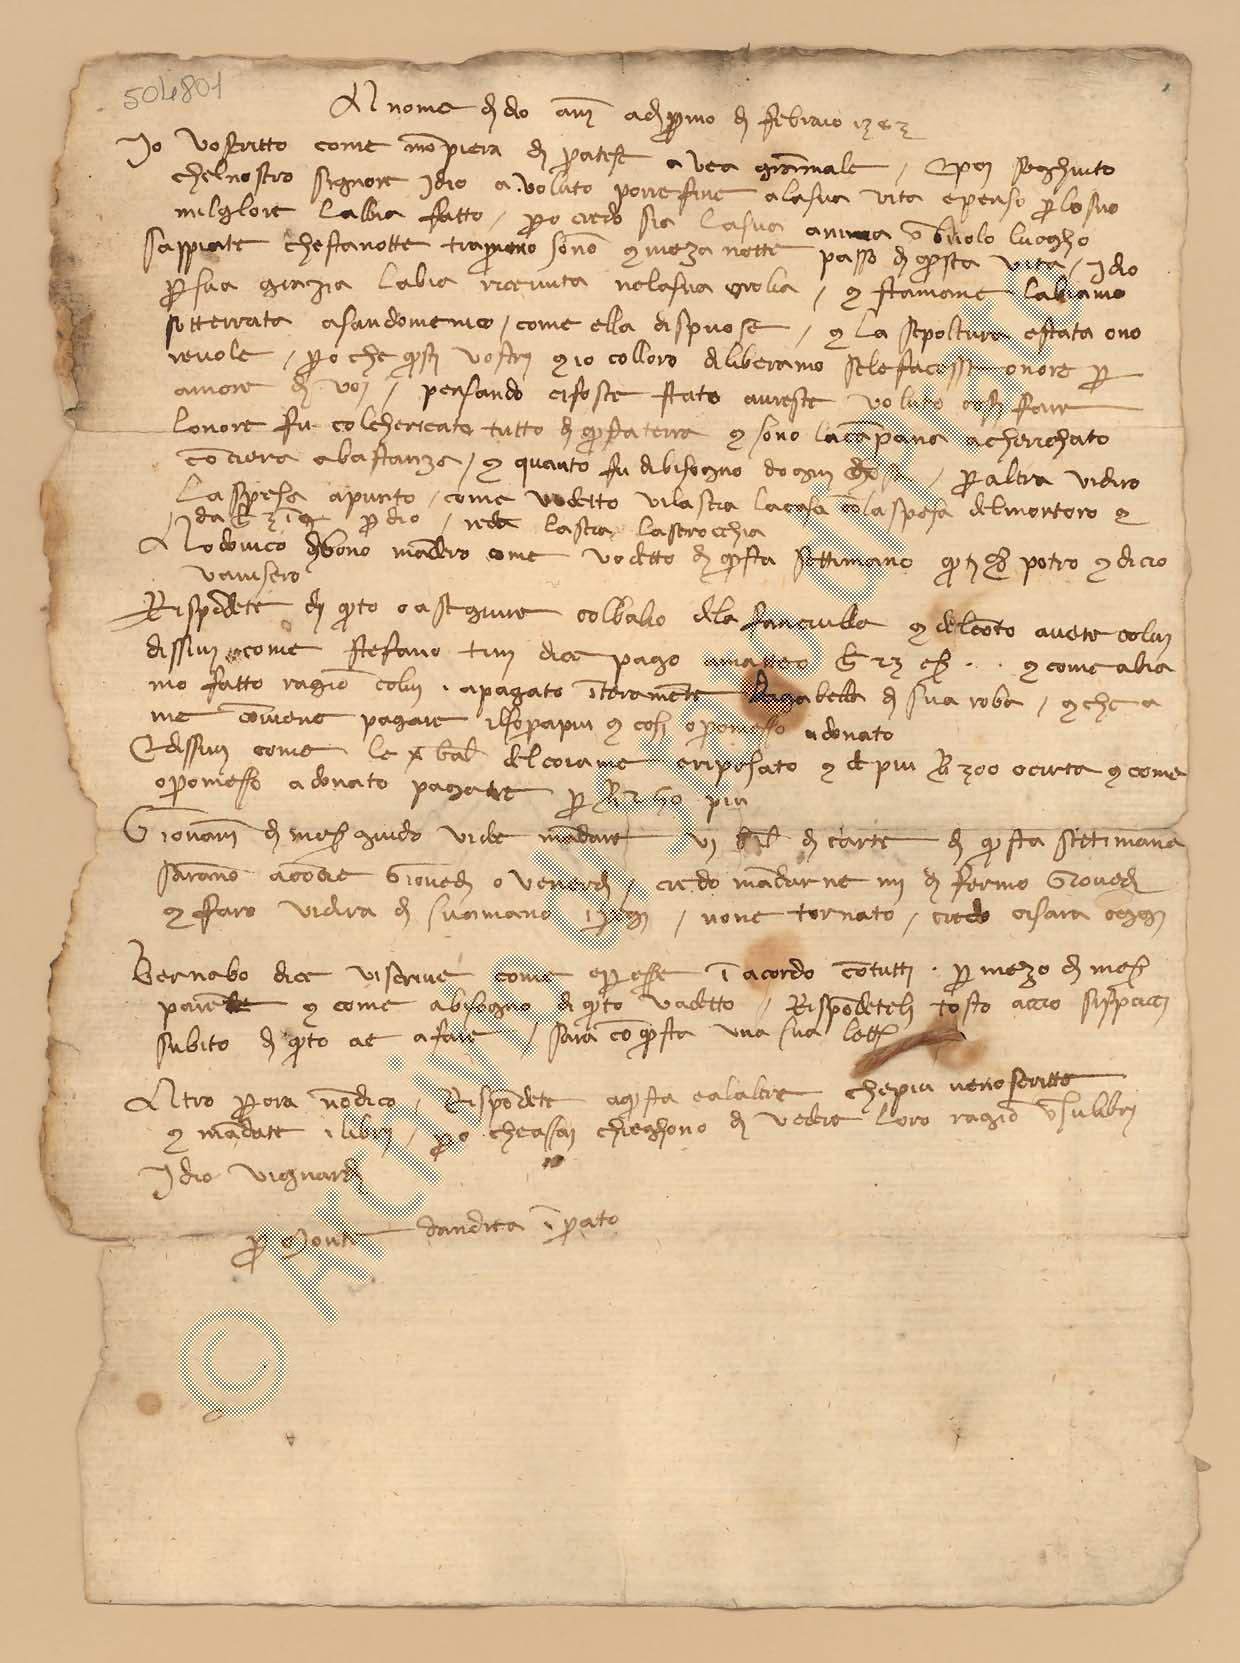 504801
Al nome di dio am̄ adi primo di febraio 1392
Io vo scritto come mōpiera di pratese avea gra male / E poi seghuito
chel nostro signore Idio a voluto porre fine ala sua vita e penso p lo suo
milglore labbia fatto / po credo sia la sua anima ī buolo luogho
sappiate che stanotte tra primo sono e meza notte passo di qsta vita / Idio
p sua grazia labia ricevuta nela sua grolia / e stamane labiamo
sotterrata a sandomenico / come ella dispuose / e la sepoltura e stata ono
revole / po che qsti vostri e io colloro diliberamo sele facesse onore p
amore di voi / pensando ci foste stato avreste voluto cosi fare
lonore fu colchericato tutto di qsta terra e sono la cāpana a cherichato
cō ciera abastanza / e quanto fu dibisogno dogni / p altra vi diro
la spesa apunto / come vo detto vi lascia la casa cō la spesa del mortoro e
p dio / lascia la serocchia
Lodovico di bono mādero come vo detto di qsta settimana potro e dicio
vaviserò
Rispōdete di qto o a seguire col balio dela fanciulla e del cōto avete colui
dissivi come stefano dice pago amatteo e come abia
mo fatto ragiō colui . a pagato īteramēte la gabella di sua roba / e che a
me cōviene pagare il sopapiu e cosi o pomesso a donato
E dissivi come le x bal del coiame e riposato e di piu 300 o circa e come
o pomesso a donato pagare p piu
Giovāni di mess guido vi de mādare vj bal di carte di qsta settimana
sarāno acōcie giovedi o venerdi / credo mādarne iiij di fermo Giovedi
e faro vi dira di sua mano / none tornato / credo ci sara oggi
Bernabo dice vi scrive come esse ī acordo cō tutti . p mezo di mess
parēte e come abisogno di qto va detto / Rispōdeteli tosto accio si spacci
subito di qto ae a fare / sara cō qsta una sua lett
Altro p ora nō dico / Rispōdete a qsta e alaltre che piu veno scritte
e mādate i libri / po che assai chieghono di vedere loro ragiō ī su libri
Idio vi guardi
p Monte dandrea ī prato